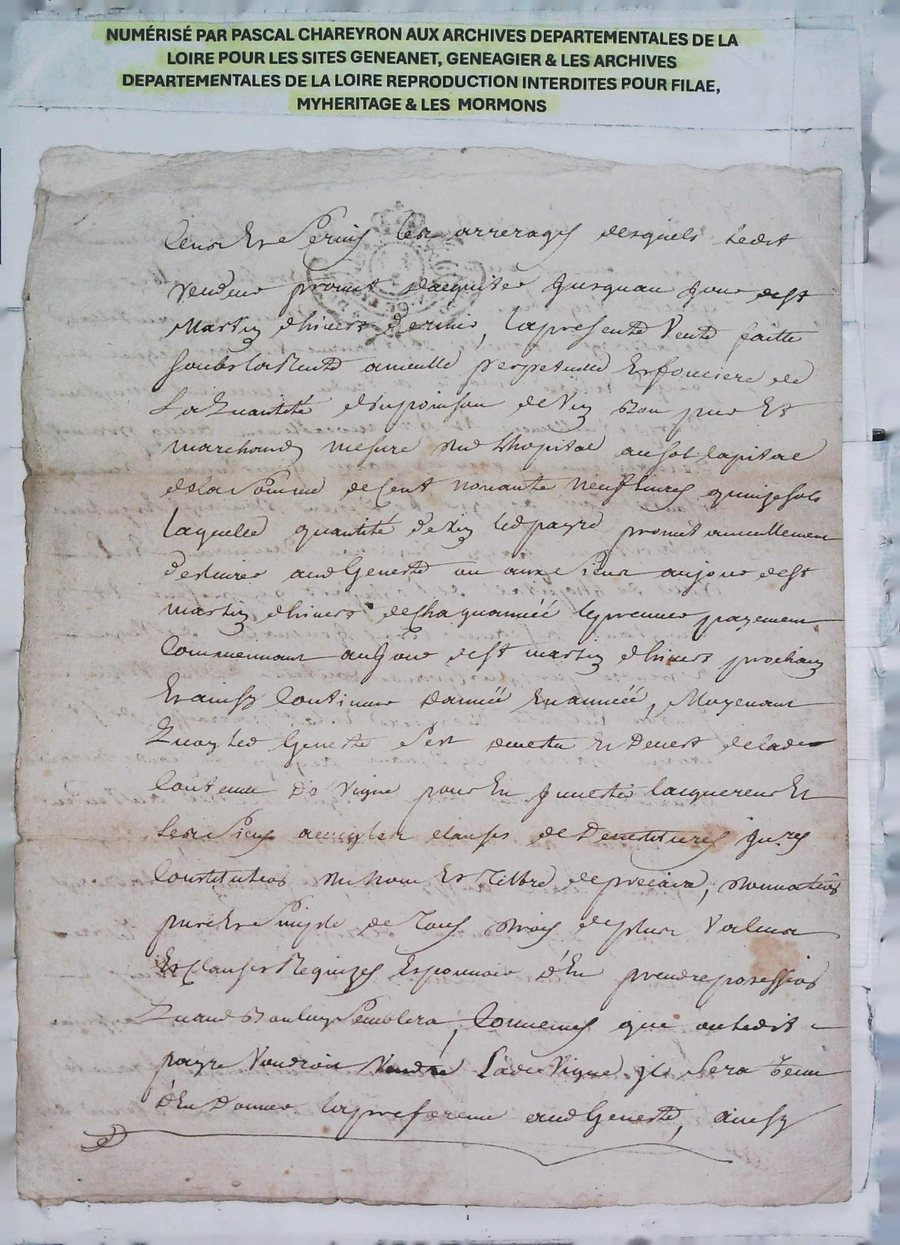 NUMÉRISÉ PAR PASCAL CHAREYRON AUX ARCHIVES DEPARTEMENTALES DE LA
LOIRE POUR LES SITES GENEANET, GENEAGIER & LES ARCHIVES
DEPARTEMENTALES DE LA LOIRE REPRODUCTION INTERDITES POUR FILAE,
MYHERITAGE & LES MORMONS
Cens Et Servis les arrerages desquels ledit
vendeur promit d'acquiter jusquau jour de st
Martin d'hivert dernier, la presente Vente faitte
soubs la Rente annuelle perpetuelle Et fonciere de
La quantité d'un poinson de vin bon pur Et
marchand mesure de l'hopital au sol Capital
de la somme de Cent nonante neuf livres quinze sols
laquelle quantité de vin led payre promit annuellement
audGeneste ou aux siens au jour de st
martin d'hivert de Chaquannéé le premier payement
Commennant au Jour de st martin d'hivert prochain
Et ainsy Continuer d'annéé En annéé, Moyenant
Quoy led Geneste s'est demetu Et Devest de lade
Contenue de Vigne pour En Investir lacquereur Et
les siens avec les clauses de Devestitures
Constitution du nom Et Tiltre de precaire, donnation
pure Et simple de Tous droits de plus Valeur
Et Clauses Requizes Et pouvoir d'En prendre possession
Quand Bon luy semblera, Convenus que ou ledit
payre Voudroit Vendre Lade Vigne il sera Tenu
d'En Donner la preference audGeneste, ainsy